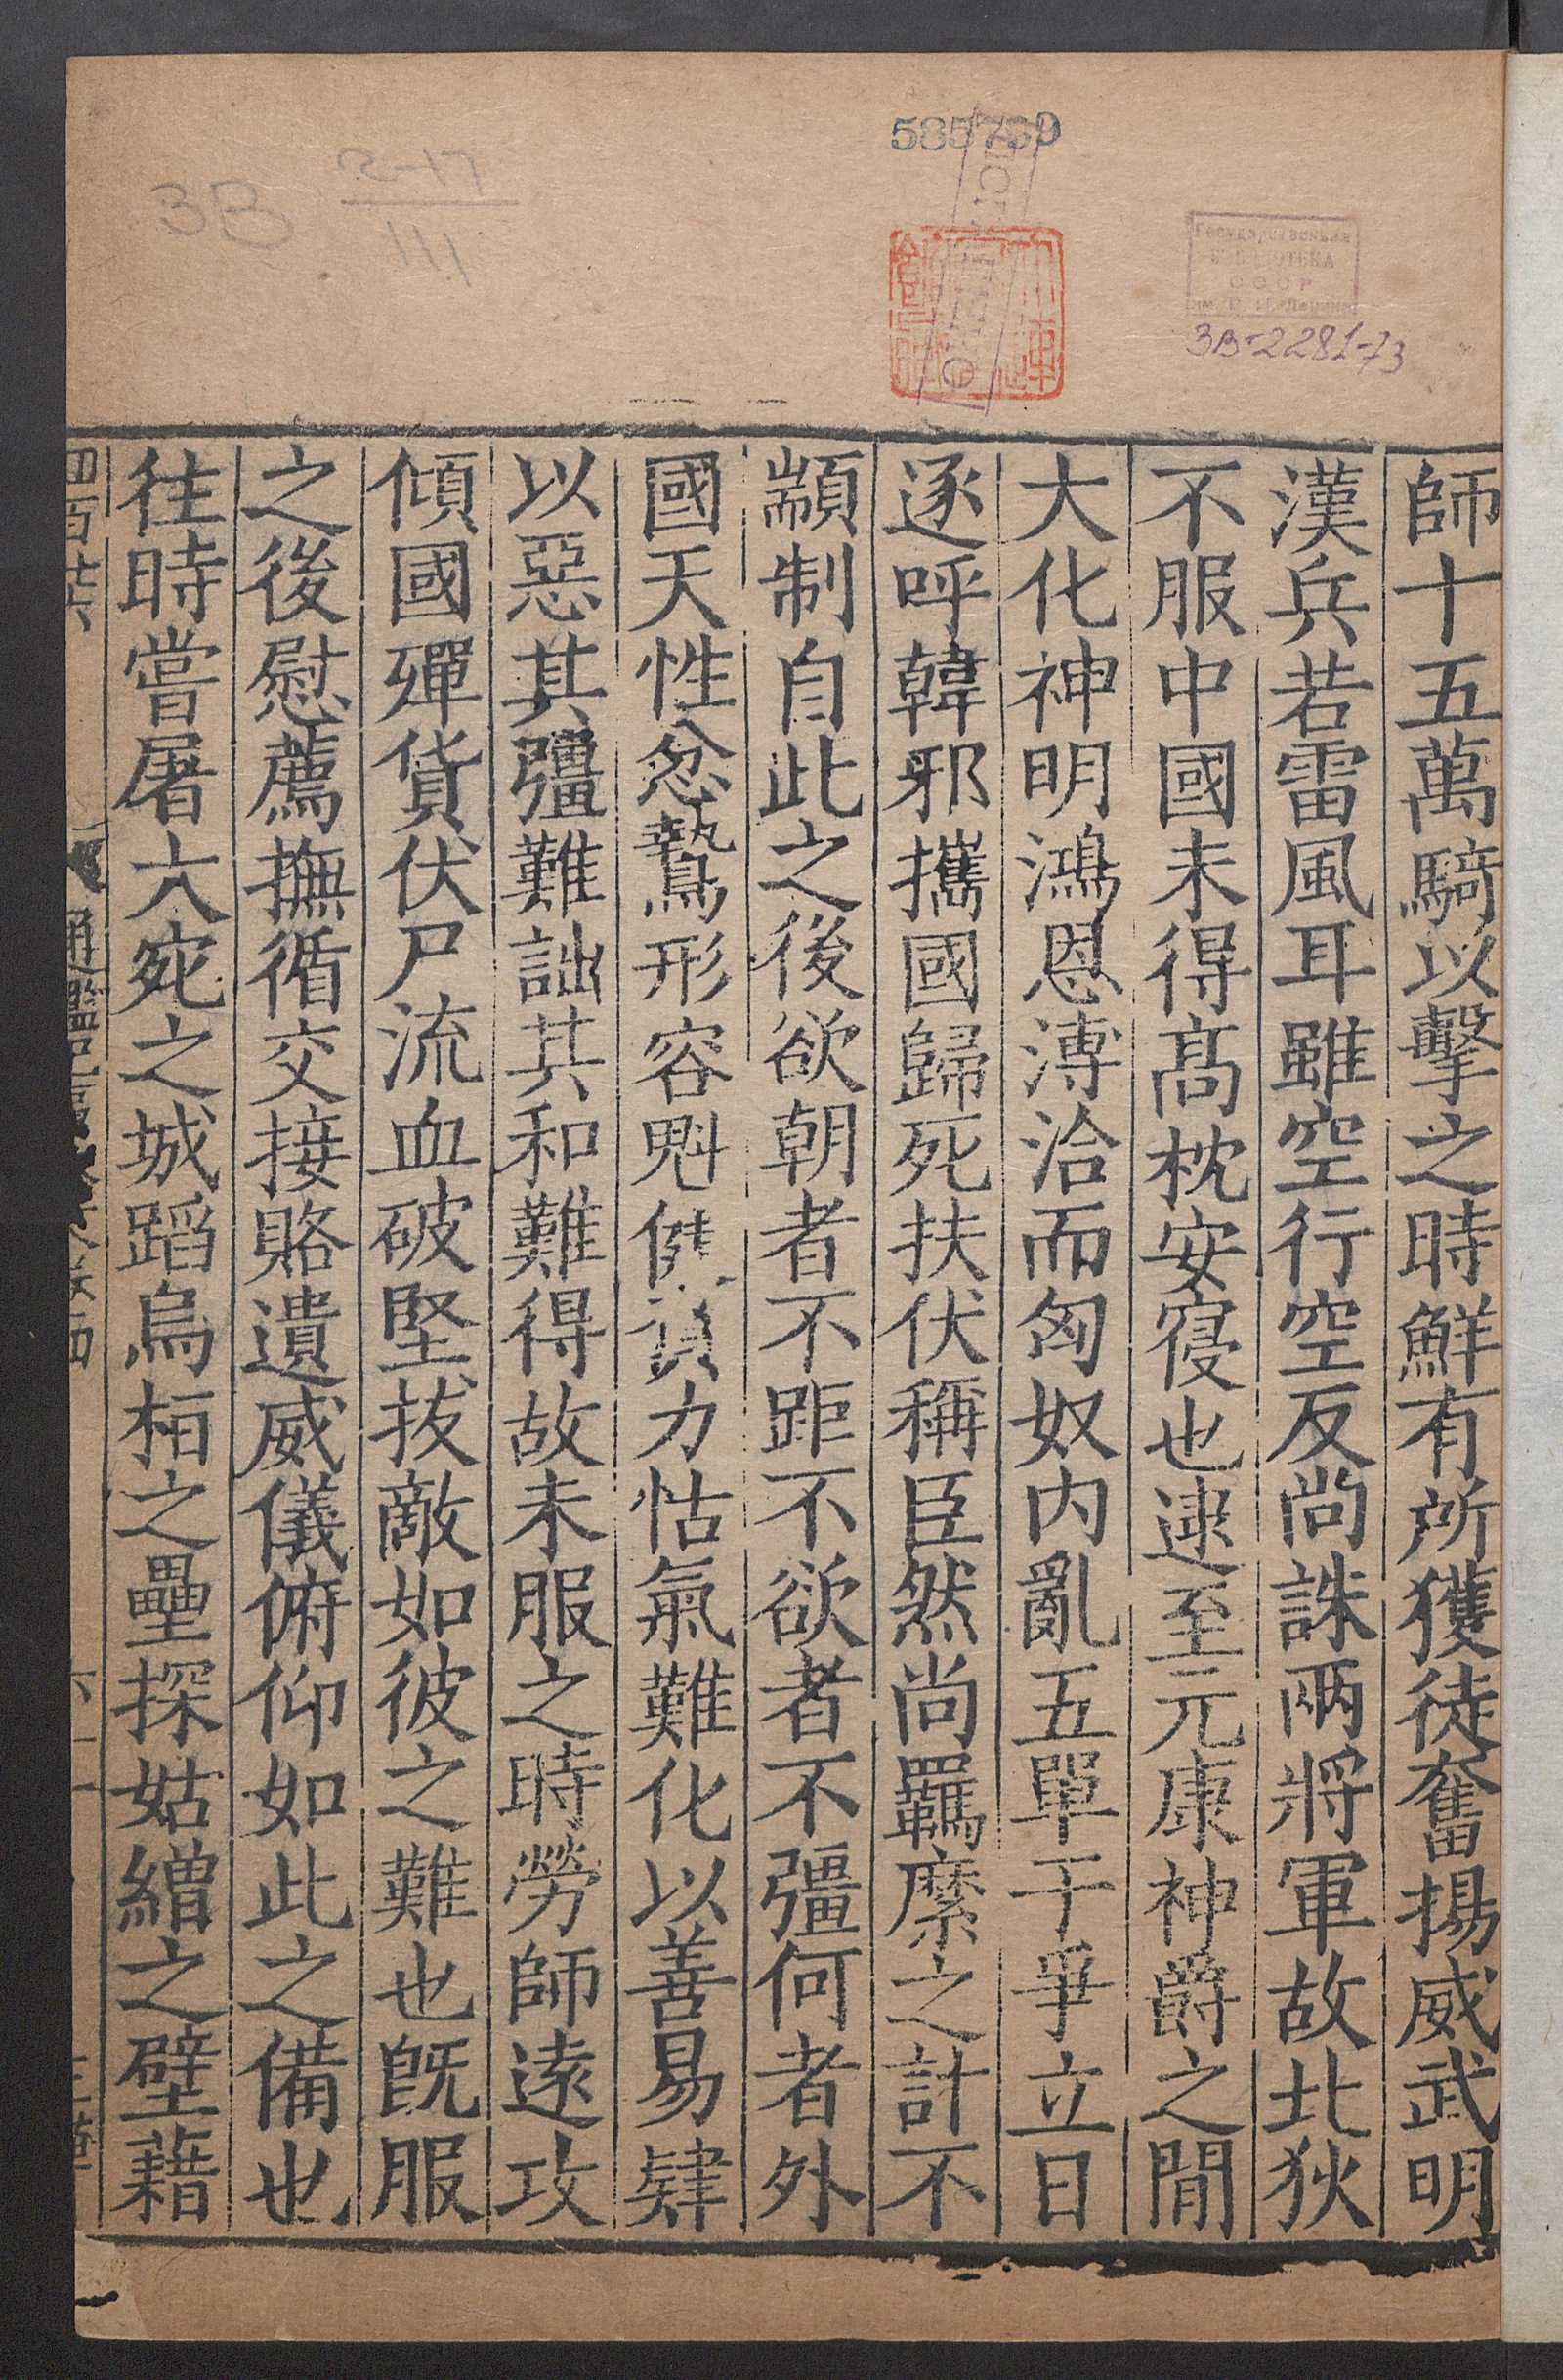 585739
3B 2-17
111
Государственная
БИБЛИОТЕКА
СССР
им. В. И. Ленина
3B-2281-73
師十五萬騎以擊之時鮮有所獲徒奮揚威武明
漢兵若雷風耳雖空行空反尚誅兩將軍故北狄
不服中國未得髙枕安寑也逮至元康神爵之閒
大化神明鴻恩溥洽而匈奴内亂五單于爭立日
逐呼韓邪攜國歸死扶伏稱臣然尚羈縻之計不
顓制自此之後欲朝者不距不欲者不彊何者外
國天性忿鷙形容魁健負力怙氣難化以善易肄
以惡其彊難詘其和難得故未服之時勞師逺攻
傾國殫貨伏尸流血破堅拔敵如彼之難也既服
之後慰薦撫循交接賂遺威儀俯仰如此之備也
往時嘗屠大宛之城蹈烏桓之壘探姑繒之壁藉